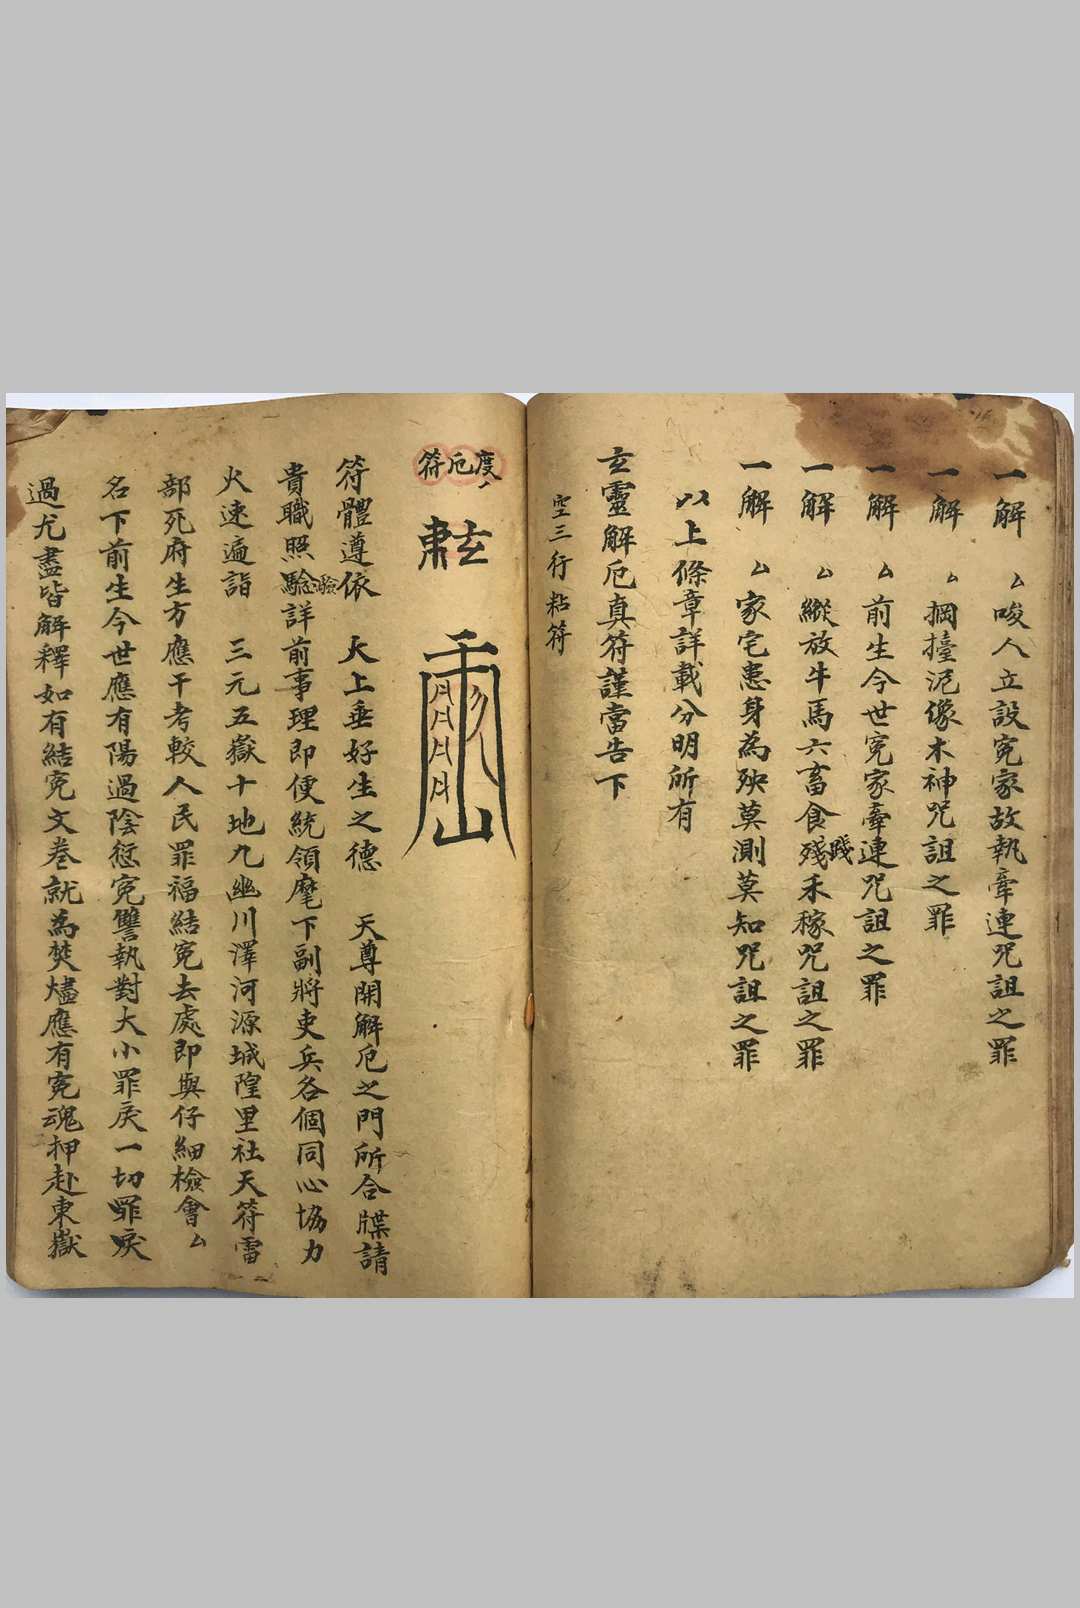 一解 厶唆人立設寃家故執牽連咒詛之罪
一解 厶掆擡泥像木神咒詛之罪
一解 厶前生今世寃家牽連咒詛之罪
一解 厶縱放牛馬六畜食殘踐禾稼咒詛之罪
一解 厶家宅患身為殃莫測莫知咒詛之罪
以上條章詳載分明所有
玄靈解厄真符謹當告下
空三行粘符
度厄符
玄
符體遵依 大上垂好生之德 天尊開解厄之門所合牒請
貴職照驗驗詳前事理即便統領麾下副將吏兵各個同心協力
火速遍詣 三元五嶽十地九幽川澤河源城隍里社天符雷
部死府生方應干考較人民罪福結寃去處即與仔細檢會厶
名下前生今世應有陽過陰愆寃讐執對大小罪戾一切罪戾
過尤盡皆解釋如有結寃文卷就為焚燼應有寃魂押赴東嶽